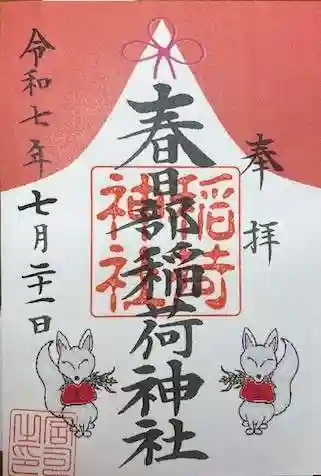 奉拝
春日部稲荷神社
稲荷
神社
令和七年七月二十一日
宮司
之印